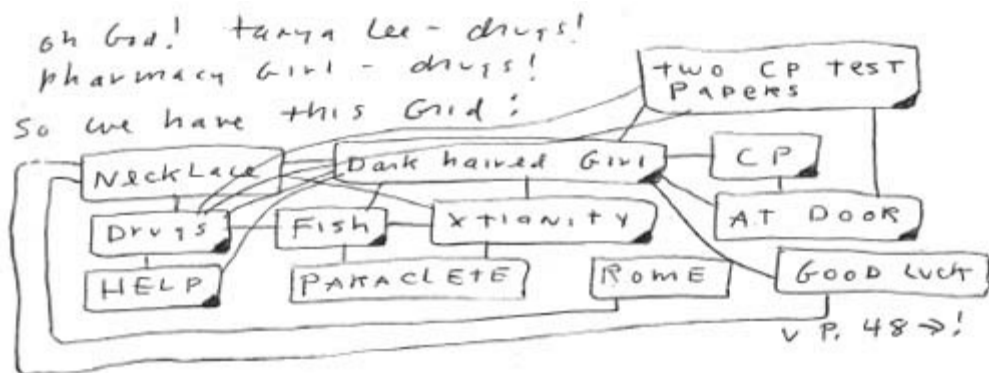 oh God! tanya Lee - drugs!
pharmacy Girl - drugs!
So we have this Grid:
two CP test
Papers
NeckLace
Dark haired Girl
CP
Drugs
Fish
Xtianity
AT DOOR
HELP
PARACLETE
ROME
GOOD LUCK
v P. 48 →!